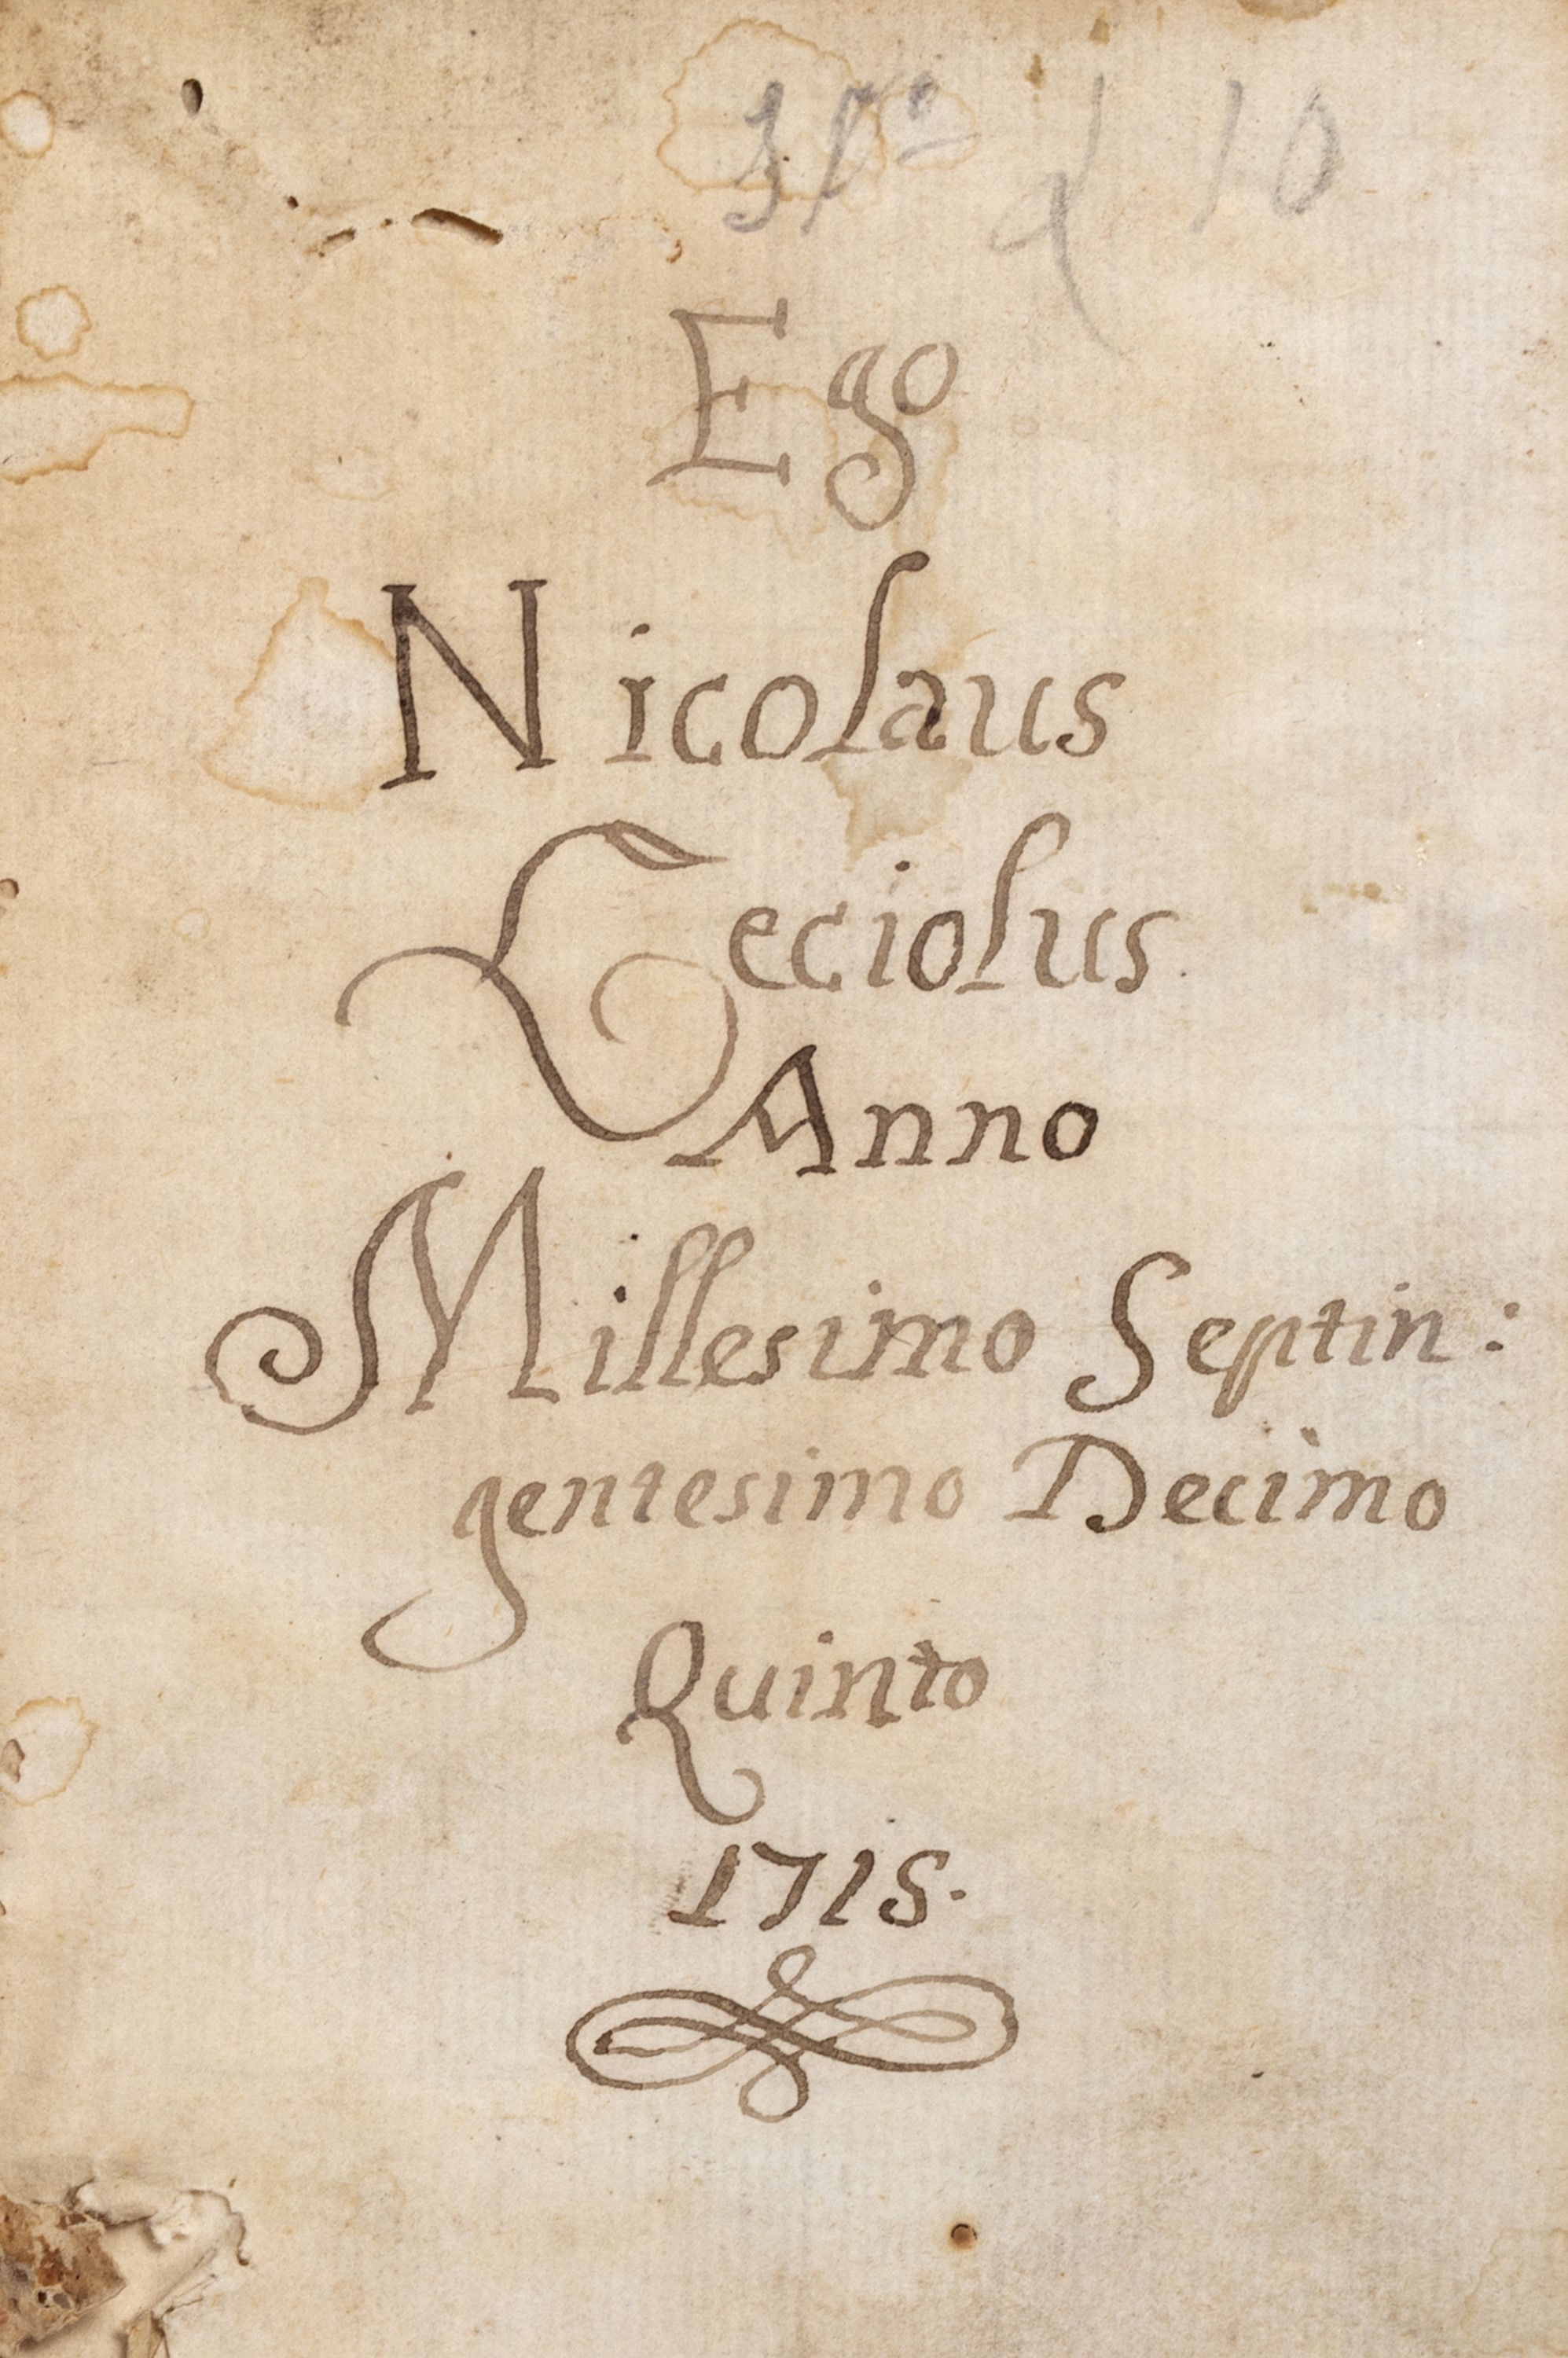 Ego
Nicolaus
Ceciolus.
Anno
Millesimo Septin:
gentesimo Decimo
Quinto
1715.